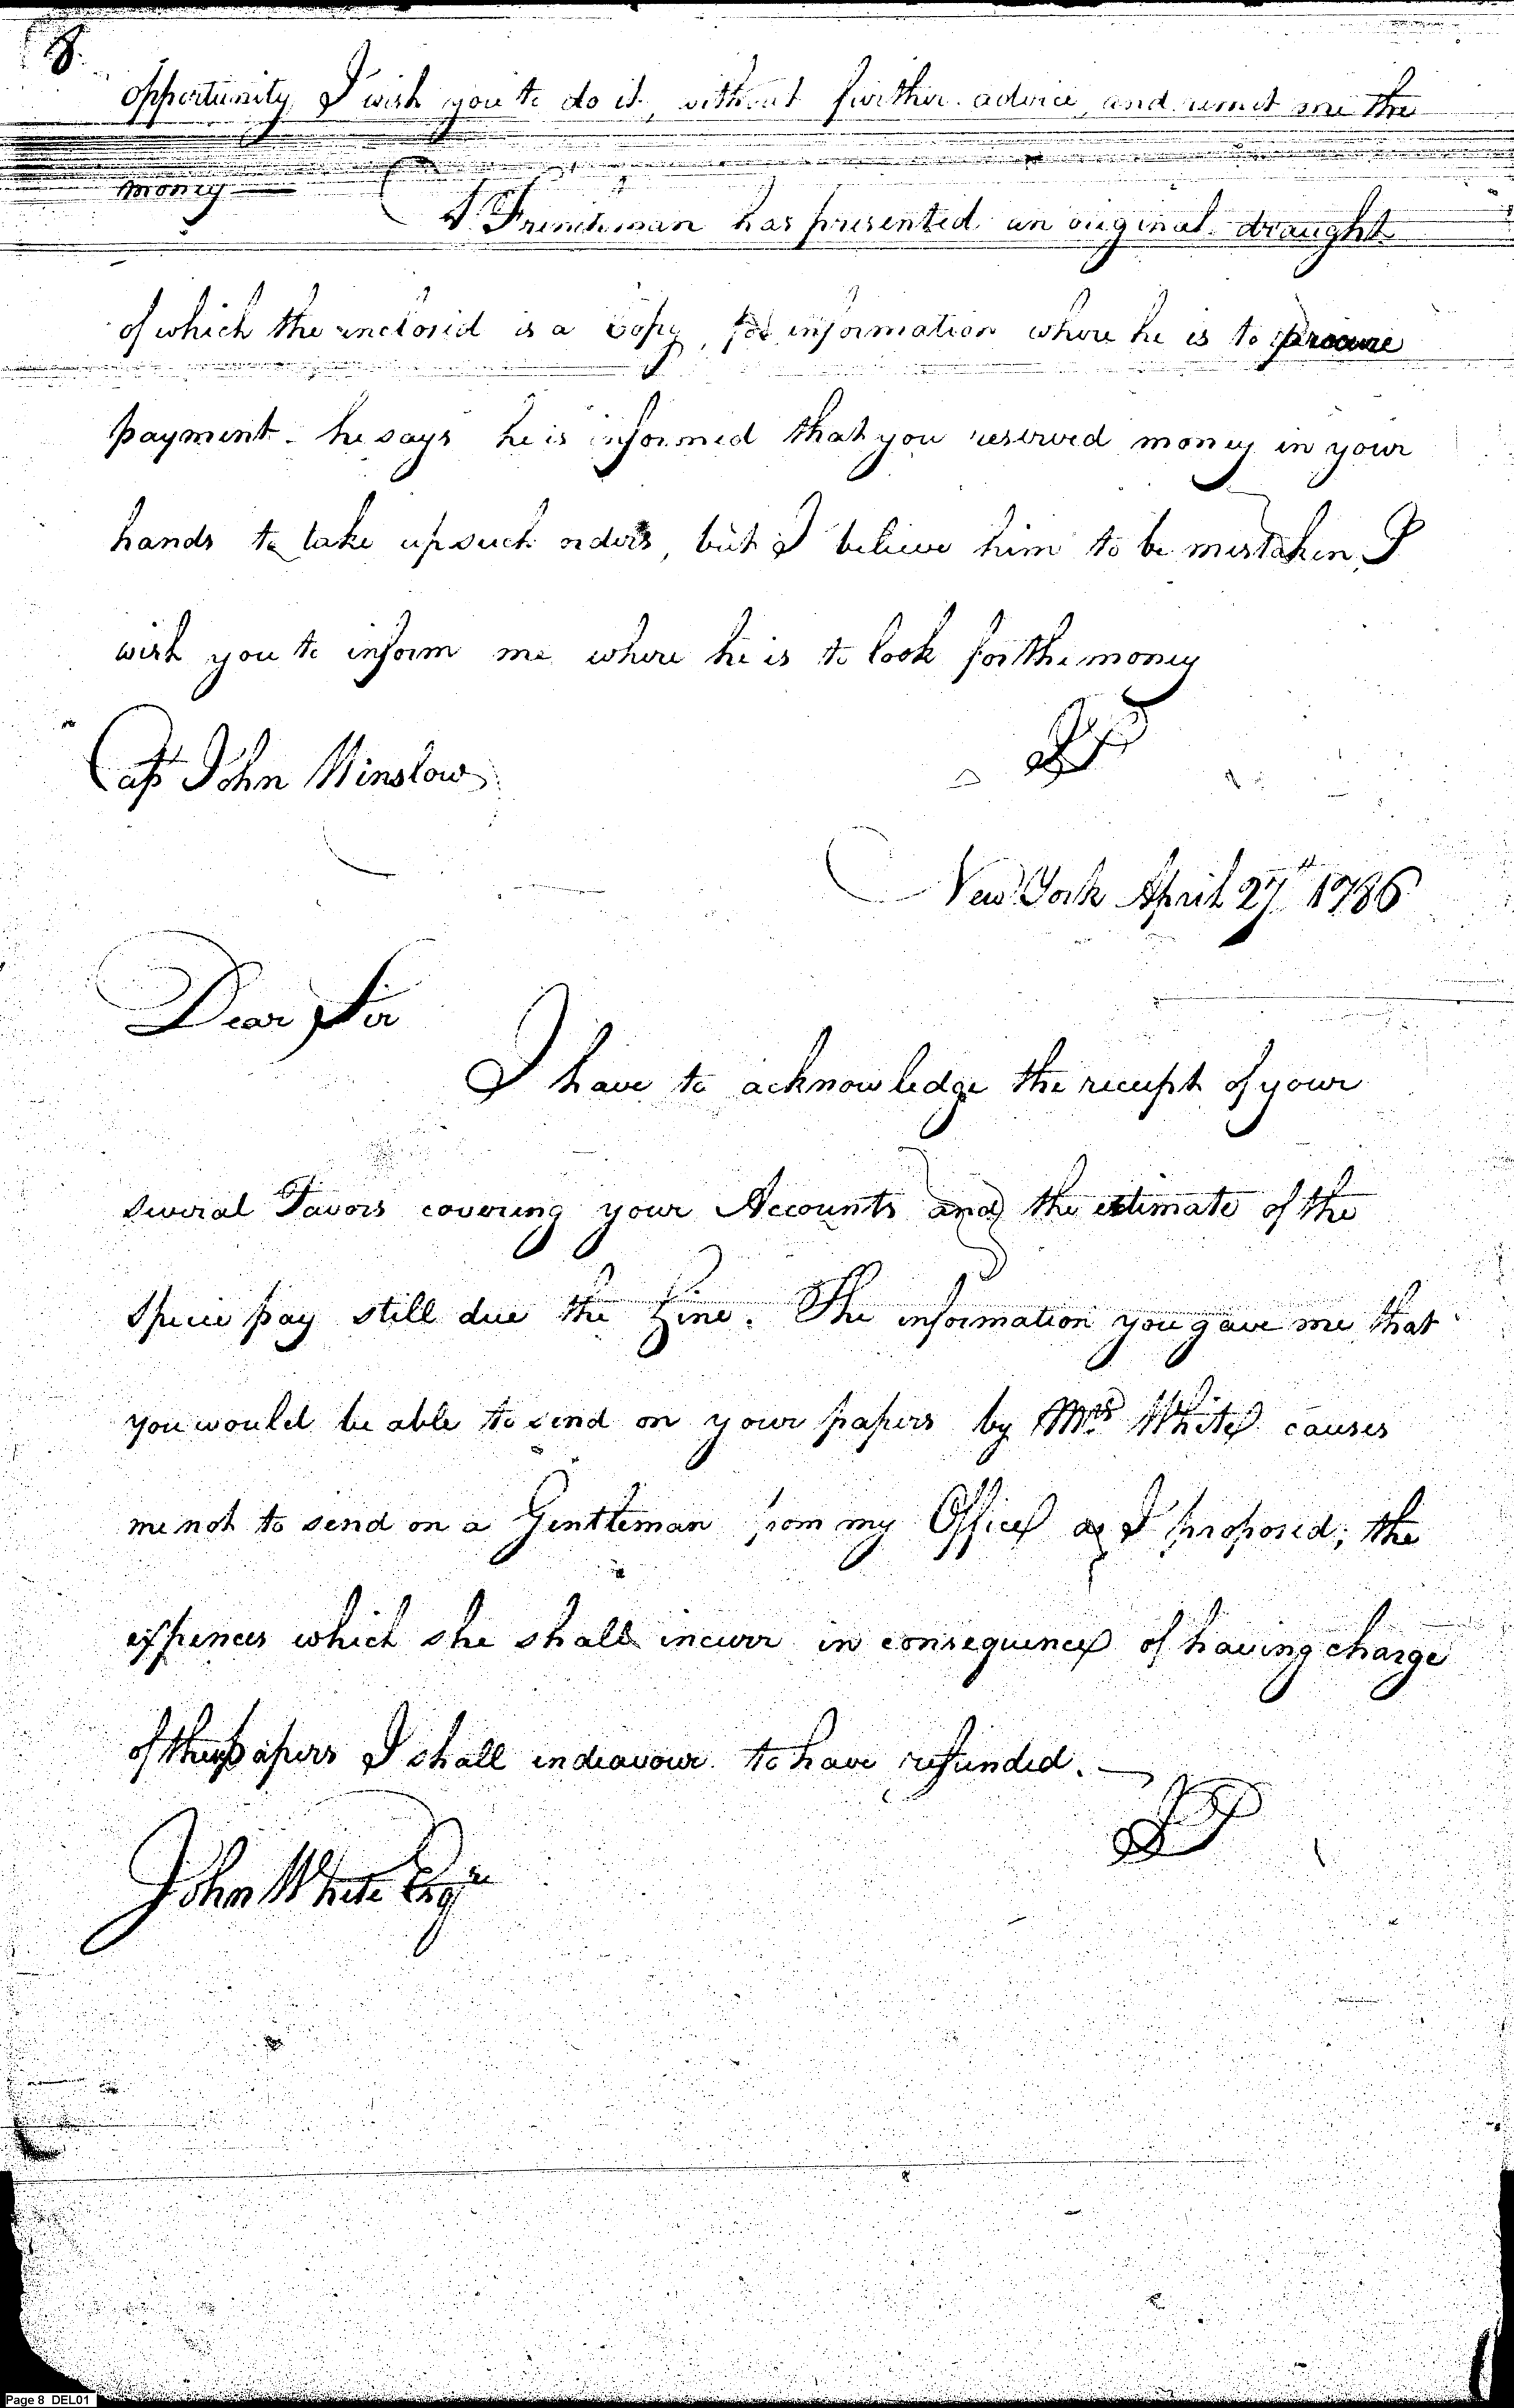 8.
opportunity I wish you to do it, without further advice, and remit me the
money
A Frenchman has presented an original draught
of which the inclosed is a Copy, for information where he is to procure
payment - he says he is informed that you reserved money in your
hands to take up such orders, but I believe him to be mistaken, I
wish you to inform me where he is to look for the money
JP
Cap John Winslow
New York April 27th 1786
Dear Sir
I have to acknowledge the receipt of your
several Favors covering your Accounts and the estimate of the
specie pay still due the Line. The information you gave me that
you would be able to send on your papers by Mrs White causes
me not to send on a Gentleman from my Office as I proposed; the
expences which she shall incurr in consequence of having charge
of these papers I shall indeavour to have refunded.
JP
John White Esqre
Page 8 DEL01